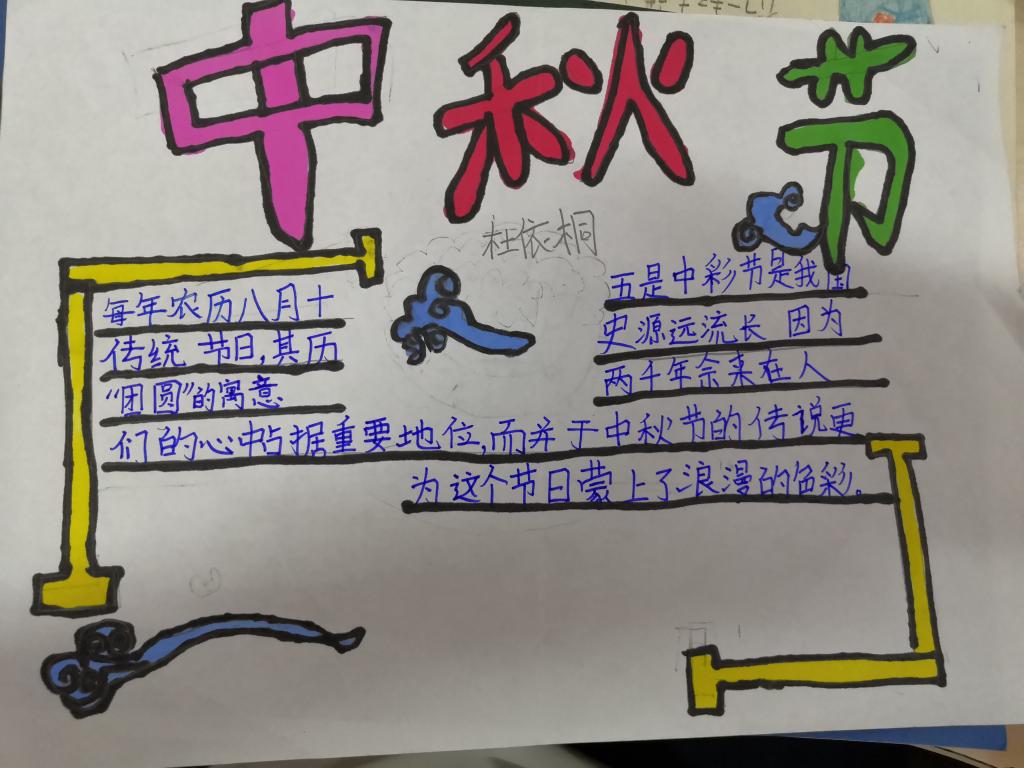 中秋节
杜依桐
每年农历八月十 五是中彩节是我国
传统节日,其历 史源远流长 因为
“团圆”的寓意 两千年余来在人
们的心中占据重要地位,而并于中秋节的传说更
为这个节日蒙上了浪漫的色彩。